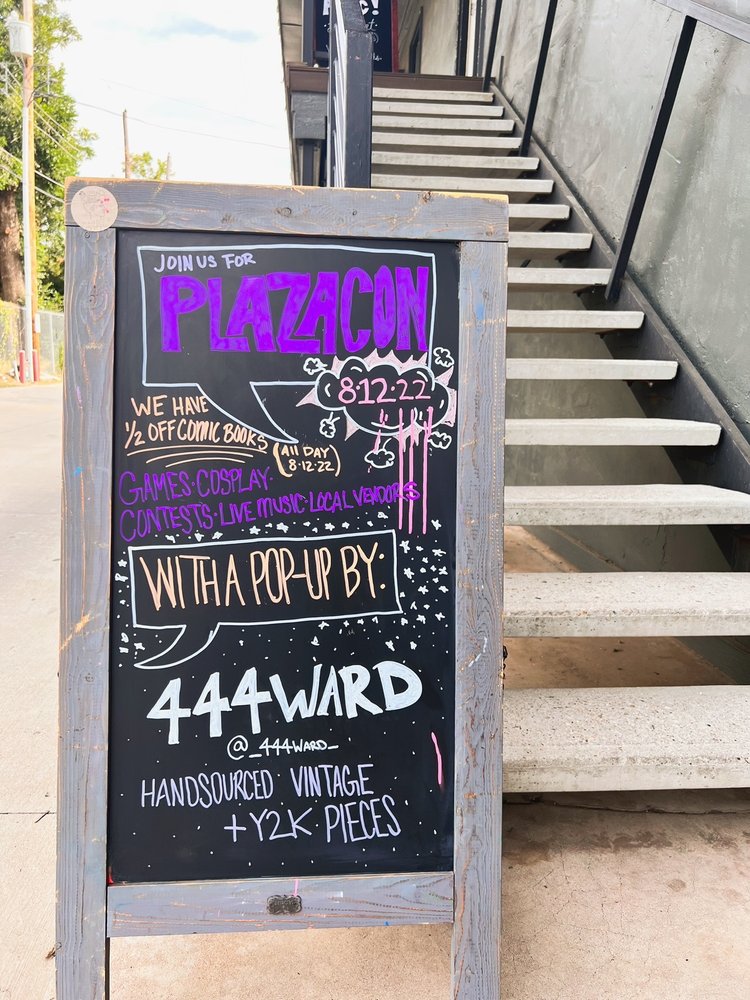 JOIN US FOR
PLAZACON
8·12·22
WE HAVE
1/2 OFF COMIC BOOKS
(All DAY
8·12·22)
GAMES·COSPLAY·
CONTESTS·LIVE MUSIC·LOCAL VENDORS
WITH A POP-UP BY:
444WARD
@_444WARD_
HANDSOURCED VINTAGE
+Y2K PIECES